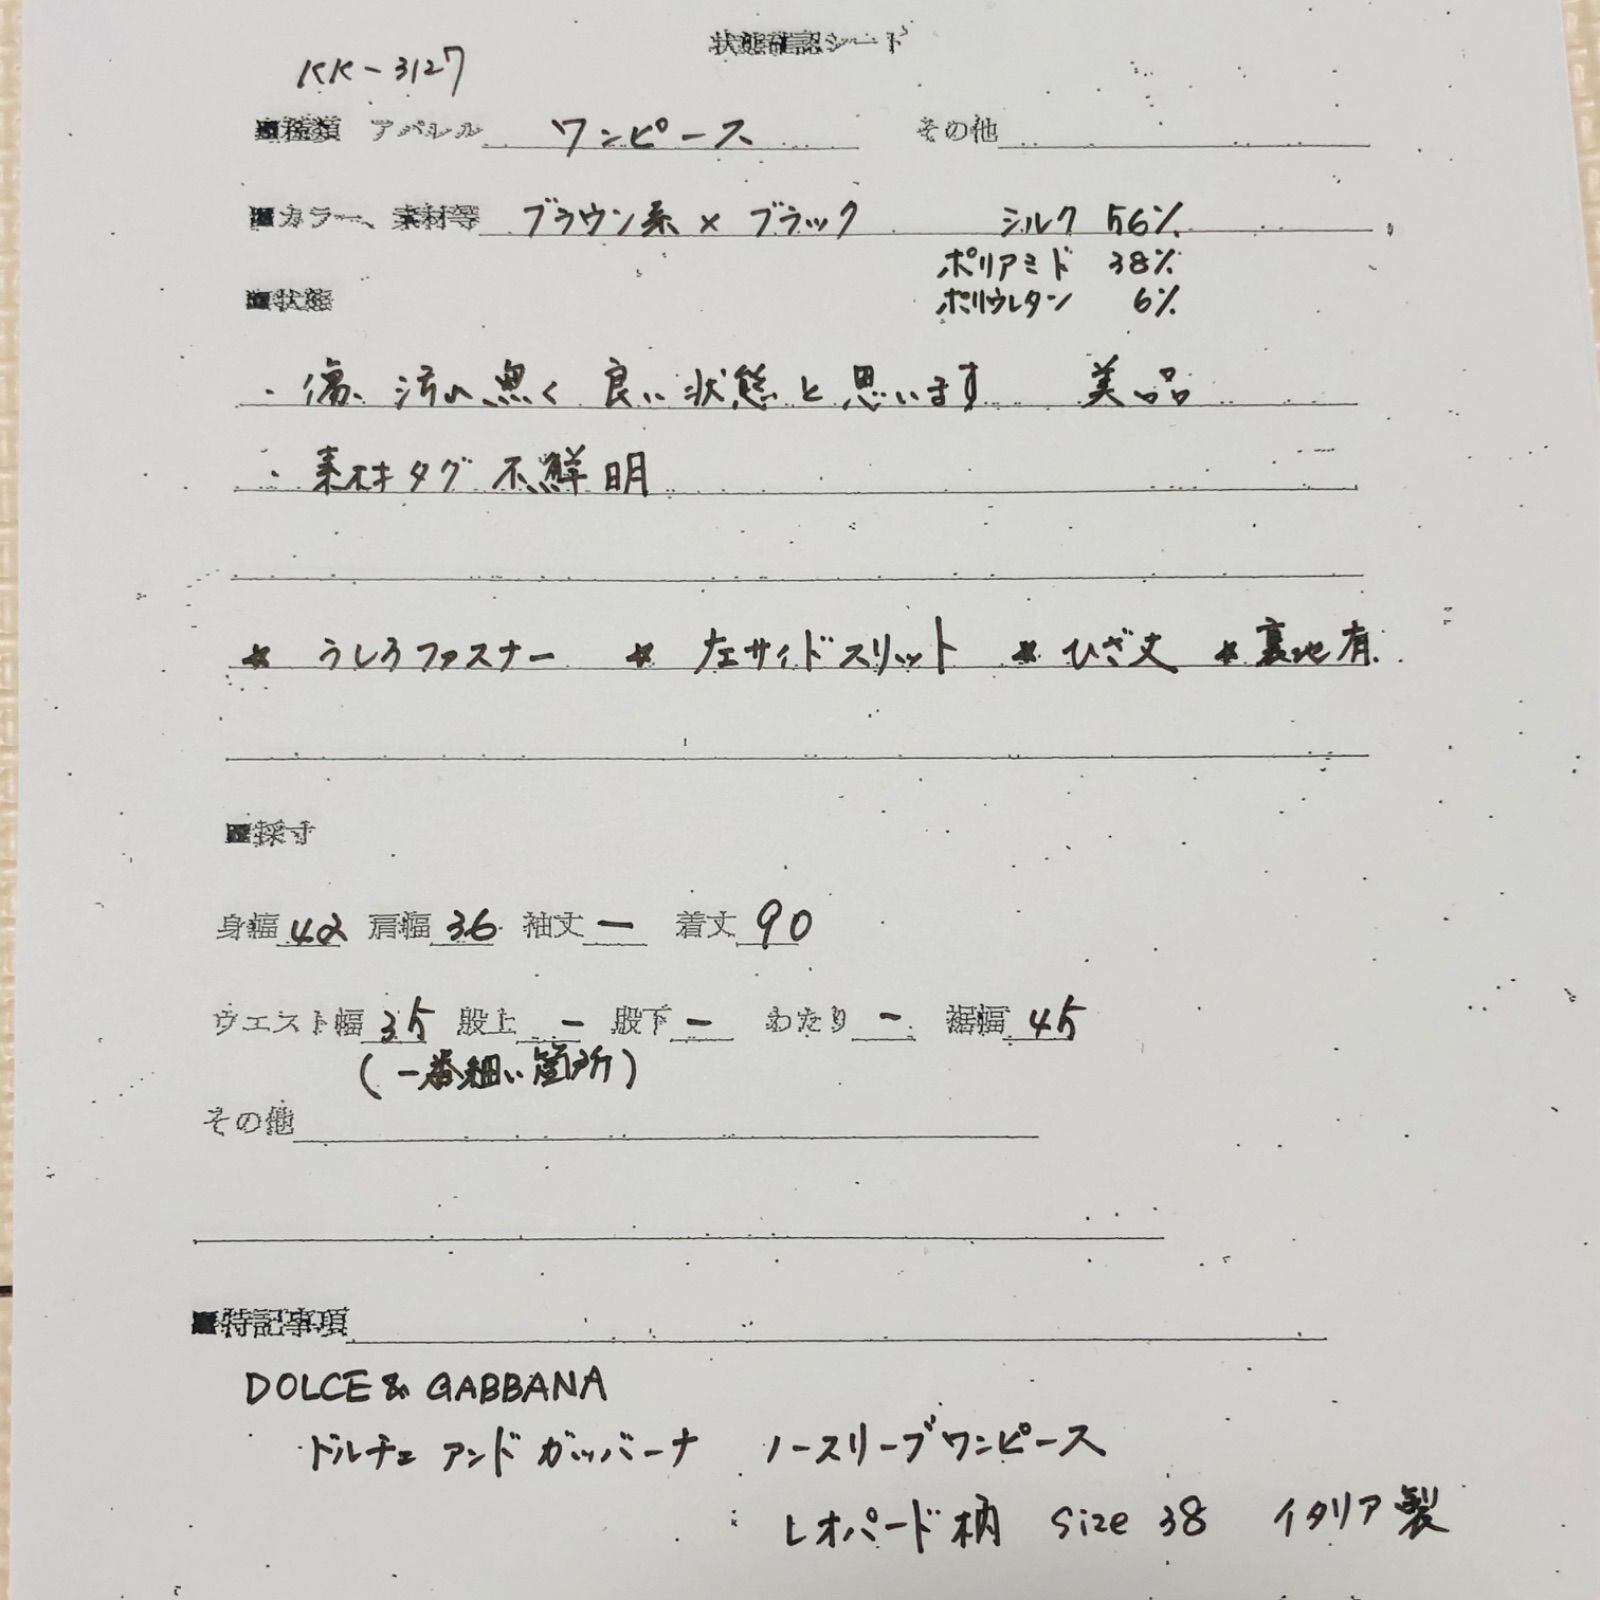 状態確認シート
KK-3127
■種類 アパレル ワンピース その他
■カラー、素材等 ブラウン系×ブラック シルク 56%
ポリアミド 38%
ポリウレタン 6%
■状態
・傷、汚れ無く良い状態と思います 美品
・素材タグ不鮮明
★ うしろファスナー ★ 左サイドスリット ★ ひざ丈 ★ 裏地有.
■採寸
身幅 42 肩幅 36 袖丈 ー 着丈 90
ウエスト幅 35 股上 ー 股下 ー わたり ー 裾幅 45
(一番細い箇所)
その他
■特記事項
DOLCE & GABBANA
ドルチェ アンド ガッバーナ ノースリーブワンピース
レオパード柄 size 38 イタリア製